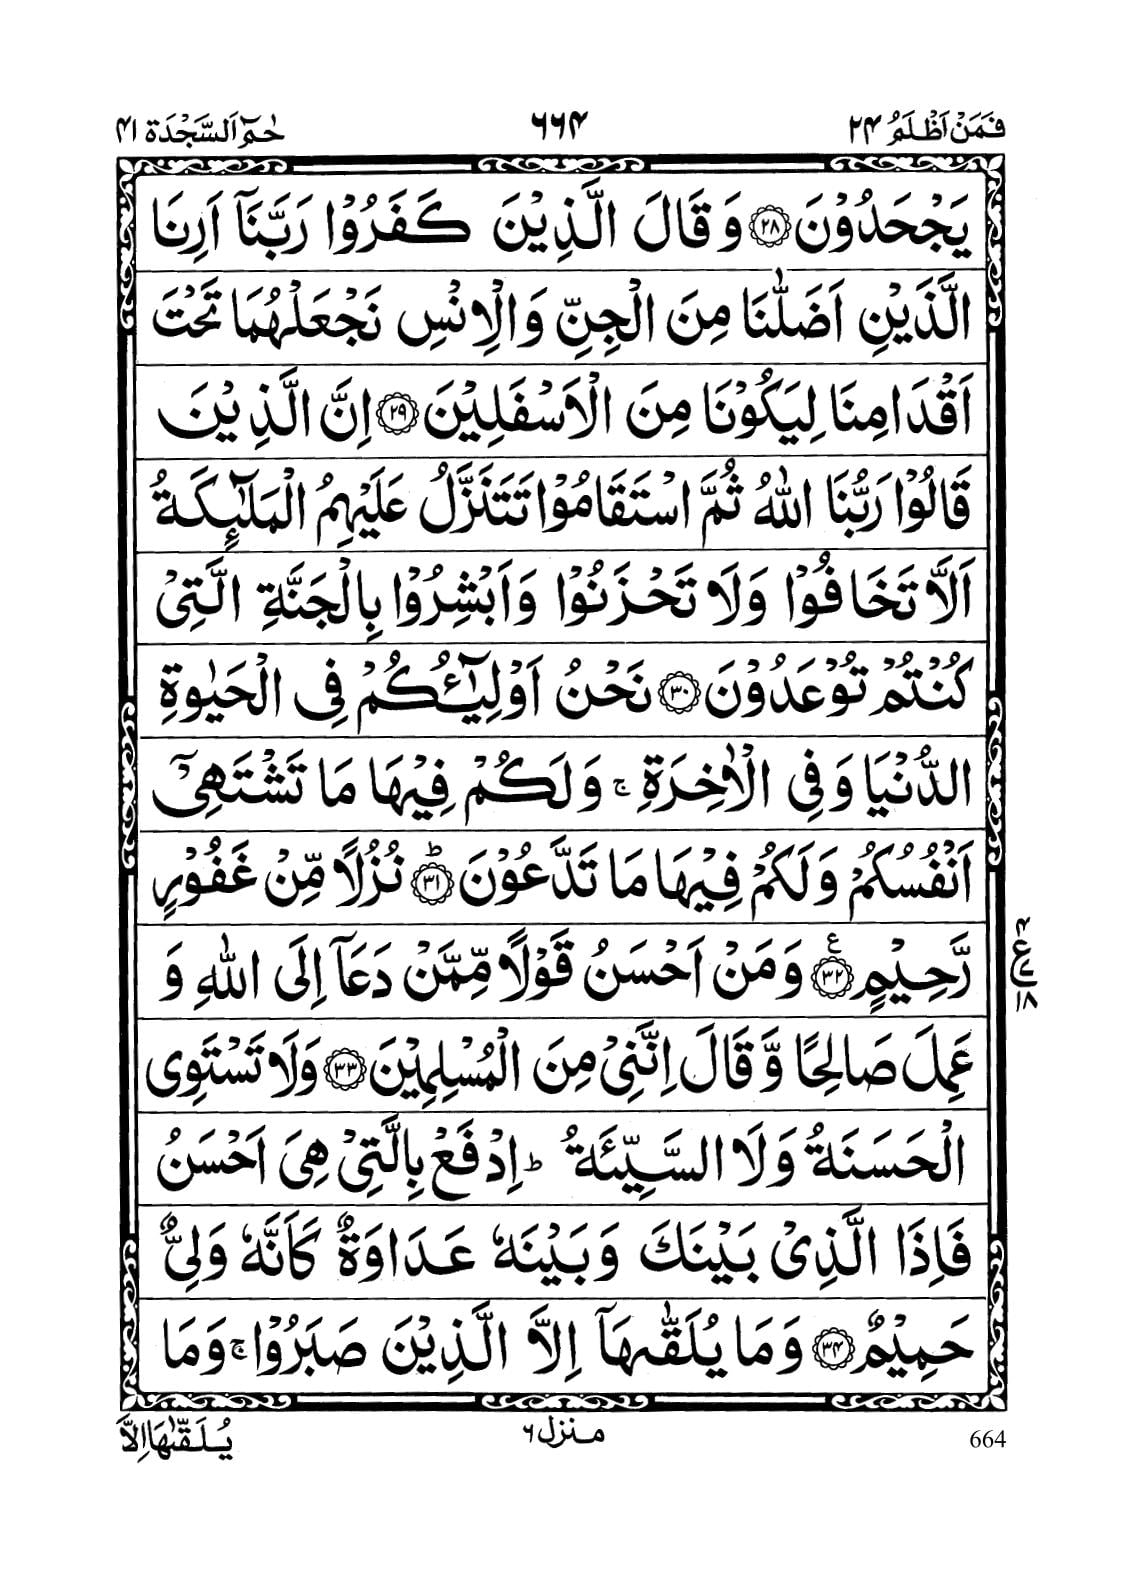 فَمَنْ اَظْلَمُ ۲۴ ٦٦۴ حٰمٓ اَلسَّجْدَة ۴۱
يَجْحَدُوْنَ ۲۸ وَ قَالَ الَّذِيْنَ كَفَرُوْا رَبَّنَآ اَرِنَا
الَّذَيْنِ اَضَلّٰنَا مِنَ الْجِنِّ وَالْاِنْسِ نَجْعَلْهُمَا تَحْتَ
اَقْدَامِنَا لِيَكُوْنَا مِنَ الْاَسْفَلِيْنَ ۲۹ اِنَّ الَّذِيْنَ
قَالُوْا رَبُّنَا اللّٰهُ ثُمَّ اسْتَقَامُوْا تَتَنَزَّلُ عَلَيْهِمُ الْمَلٰٓئِكَةُ
اَلَّا تَخَافُوْا وَلَا تَحْزَنُوْا وَاَبْشِرُوْا بِالْجَنَّةِ الَّتِيْ
كُنْتُمْ تُوْعَدُوْنَ ۳۰ نَحْنُ اَوْلِيٰٓـؤُكُمْ فِى الْحَيٰوةِ
الدُّنْيَا وَفِى الْاٰخِرَةِ ۚ وَلَكُمْ فِيْهَا مَا تَشْتَهِىْٓ
اَنْفُسُكُمْ وَلَكُمْ فِيْهَا مَا تَدَّعُوْنَ ؕ ۳۱ نُزُلًا مِّنْ غَفُوْرٍ
رَّحِيْمٍ ۳۲ ع وَمَنْ اَحْسَنُ قَوْلًا مِّمَّنْ دَعَآ اِلَى اللّٰهِ وَ
عَمِلَ صَالِحًا وَّ قَالَ اِنَّنِيْ مِنَ الْمُسْلِمِيْنَ ۳۳ وَلَا تَسْتَوِى
الْحَسَنَةُ وَلَا السَّيِّئَةُ ؕ اِدْفَعْ بِالَّتِيْ هِيَ اَحْسَنُ
فَاِذَا الَّذِيْ بَيْنَكَ وَبَيْنَهٗ عَدَاوَةٌ كَاَنَّهٗ وَلِيٌّ
حَمِيْمٌ ۳۴ وَمَا يُلَقّٰىهَآ اِلَّا الَّذِيْنَ صَبَرُوْا ۚ وَمَا
۴ ع ۷ ۱۸
664 منزل ٦ يُلَقّٰىهَا اِلَّا